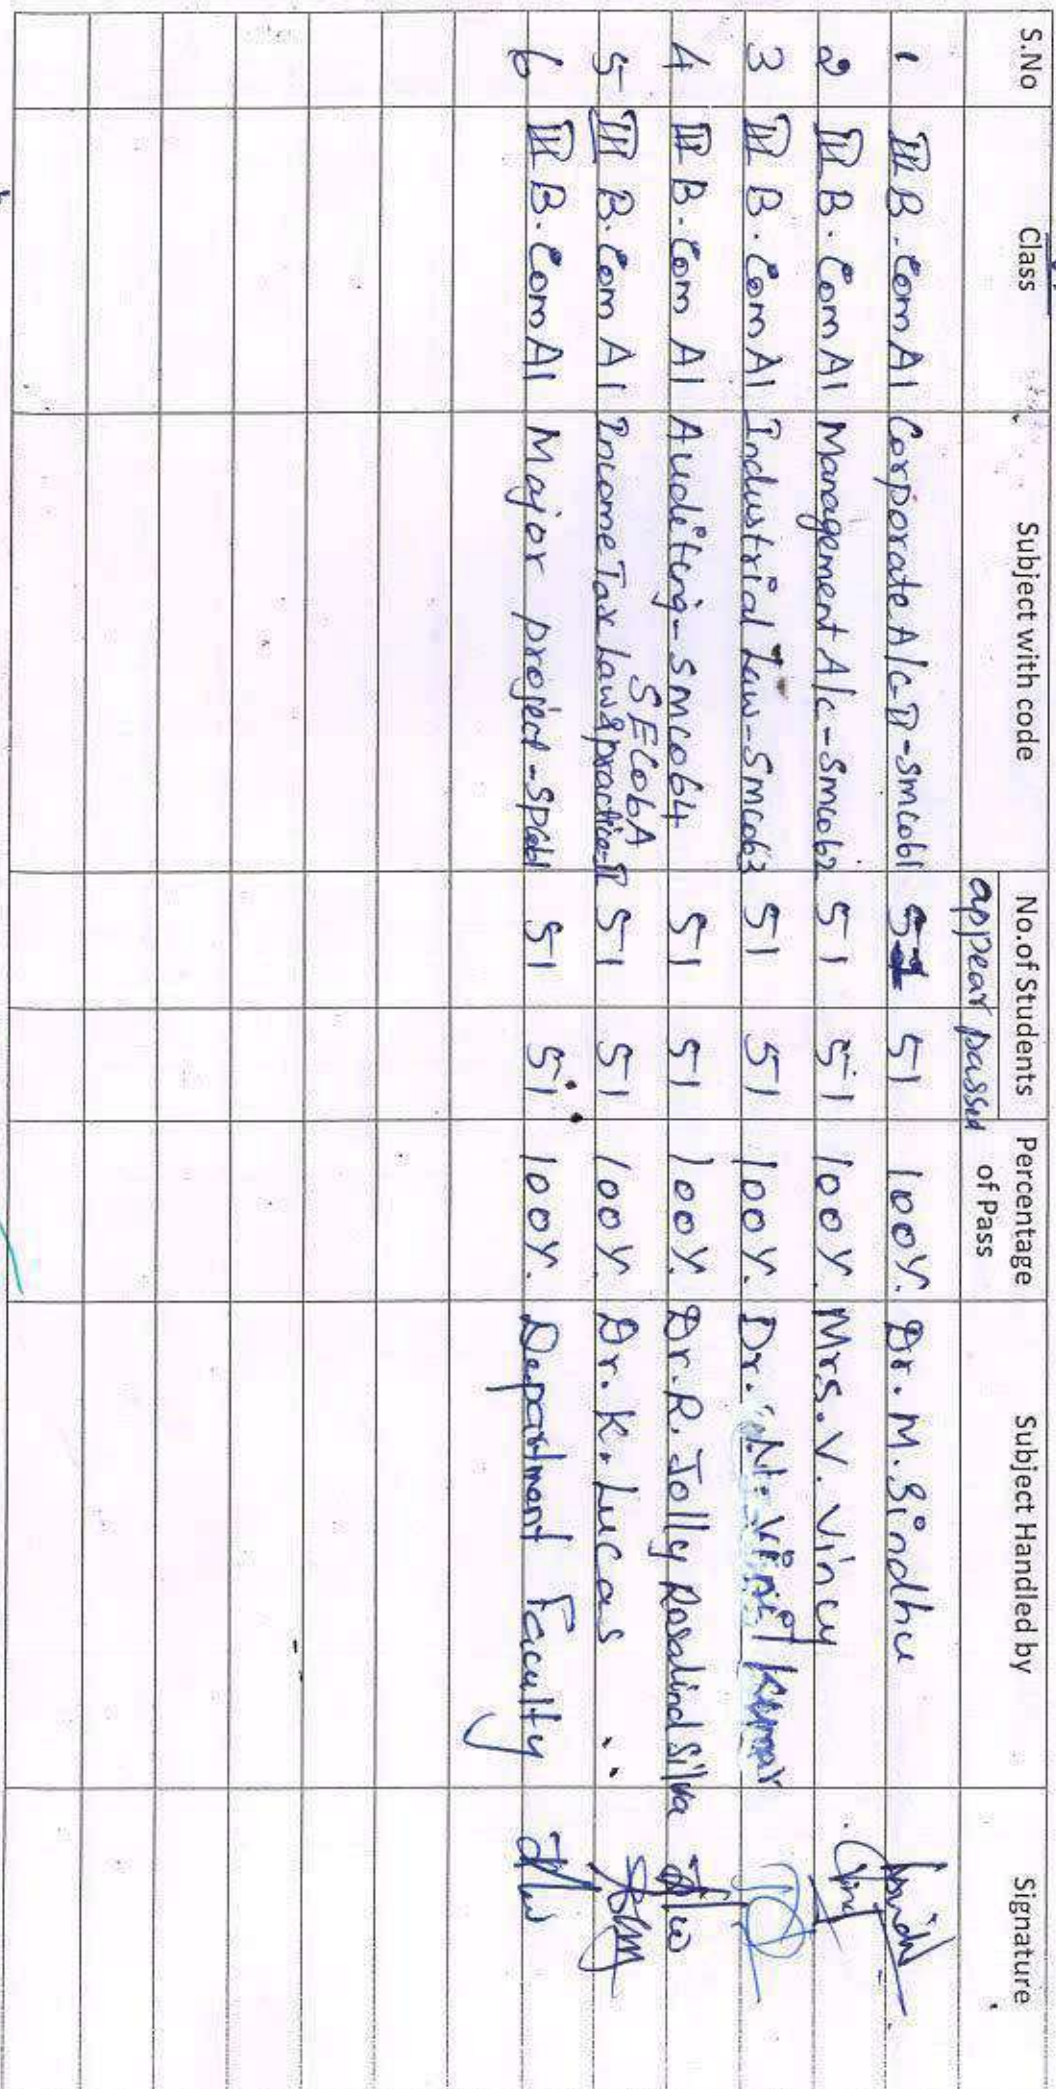 S.No Class Subject with code No.of Students Percentage of Pass Subject Handled by Signature
appear passed
1 III B.Com A1 Corporate A/c-II-SMCO61 51 51 100%. Dr. M. Sindhu
2 III B.Com A1 Management A/c-SMCO62 51 51 100%. Mrs. V. Vincy
3 III B.Com A1 Industrial Law-SMCO63 51 51 100%. Dr. N. Vinil Kumar
4 III B.Com A1 Auditing-SMCO64 51 51 100%. Dr. R. Jolly Rosalind Silva
SECO6A
5 III B.Com A1 Income Tax Law & practice-II 51 51 100%. Dr. K. Lucas
6 III B.Com A1 Major project-SPCO61 51 51 100%. Department Faculty